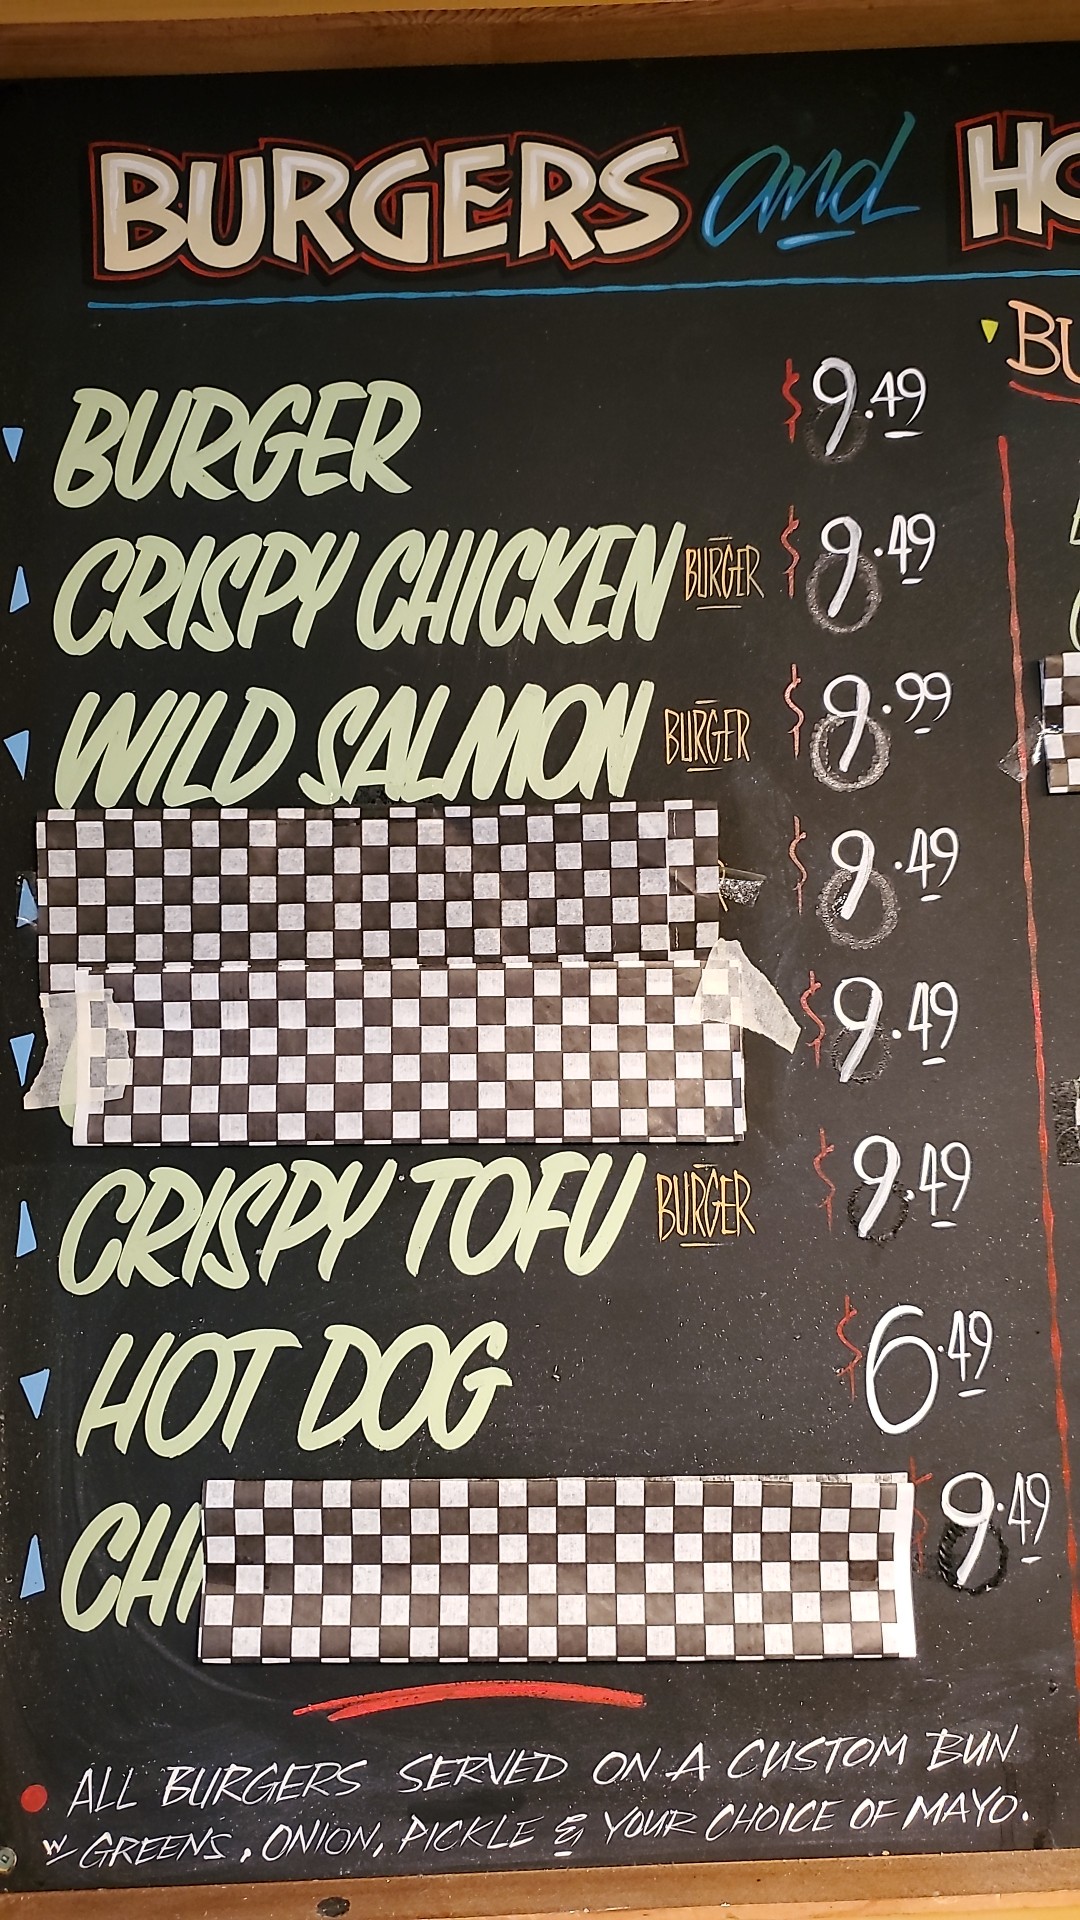 BURGERS and HO
BU
BURGER $9.49
CRISPY CHICKEN BURGER $9.49
WILD SALMON BURGER $9.99
$9.49
$9.49
CRISPY TOFU BURGER $9.49
HOT DOG $6.49
CHI $9.49
ALL BURGERS SERVED ON A CUSTOM BUN
W/ GREENS, ONION, PICKLE & YOUR CHOICE OF MAYO.